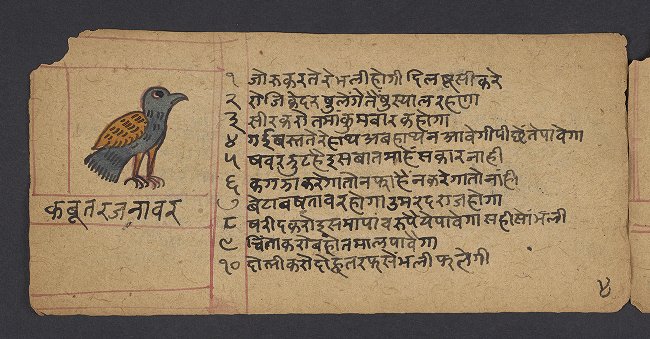 कबूतरजनावर
१ जोरुकरतेरेभलीहोगी दिलषूसीकरे
२ रोजिकेदरषुलेगेतैंषुस्यालरहणा
३ सीरकरोतमाकुमबारकहोगा
४ गईबस्ततेरेहाथअबहाथनआवेगीपीछेतेपावेगा
५ षबरझुटहैइसबातमाहैंसकारनाही
६ कगडाकरेगातोनफाहैनकरेगातोनाही
७ बेटाबषतावरहोगाउमरदराजहोगा
८ षरीदकरोइसमापावरुपैयेपावेगासहीसांभली
९ चिंताकरोबहोतमालपावैगा
१० दोस्तीकरोदोहुतरफसेभलीफहोगी
४